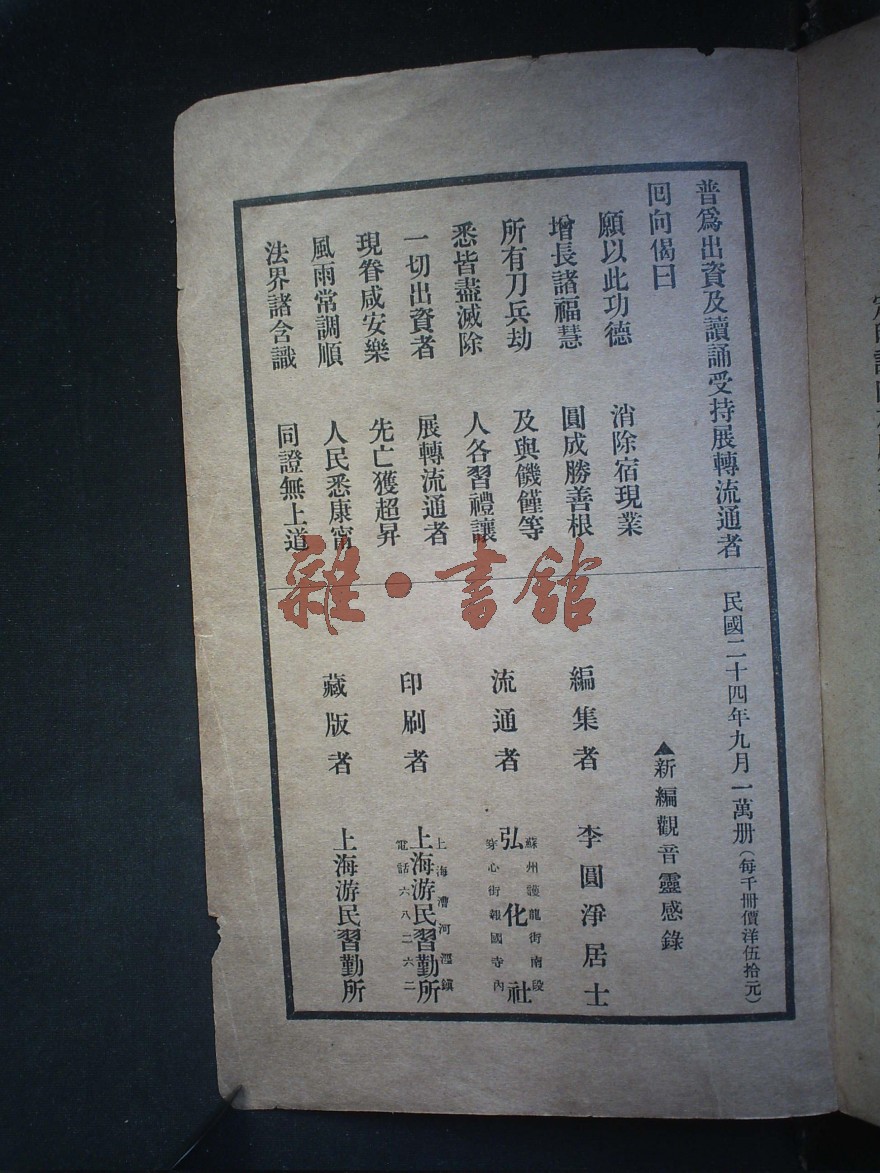 普爲出資及讀誦受持展轉流通者
回向偈曰
願以此功德 消除宿現業
增長諸福慧 圓成勝善根
所有刀兵劫 及與饑饉等
悉皆盡滅除 人各習禮讓
一切出資者 展轉流通者
現眷咸安樂 先亡獲超昇
風雨常調順 人民悉康甯
法界諸含識 同證無上道
民國二十四年九月一萬册（每千冊價洋伍拾元）
▲新編觀音靈感錄
編集者 李圓淨居士
流通者 弘化社
蘇州護龍街南段
穿心街報國寺內
印刷者 上海游民習勤所
上海漕河涇鎮
電話六八二六二
藏版者 上海游民習勤所
雜·書館